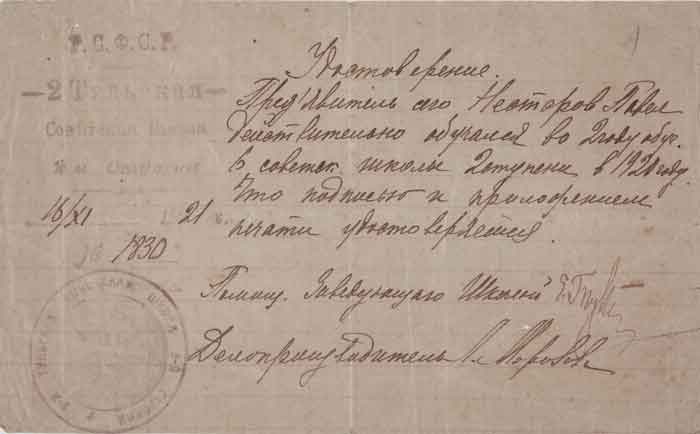 Р. С. Ф. С. Р.
2 Тульская
Советская Школа
16/XI 1921 г.
№ 1830
Удостоверение.
Предъявитель сего Нестеров Павел
действительно обучался во 2 году обуч.
в советск. школы 2 ступени в 1920 году.
Что подписью и приложением
печати удостоверяется.
Помощ. Заведующаго Школой
Делопроизводитель